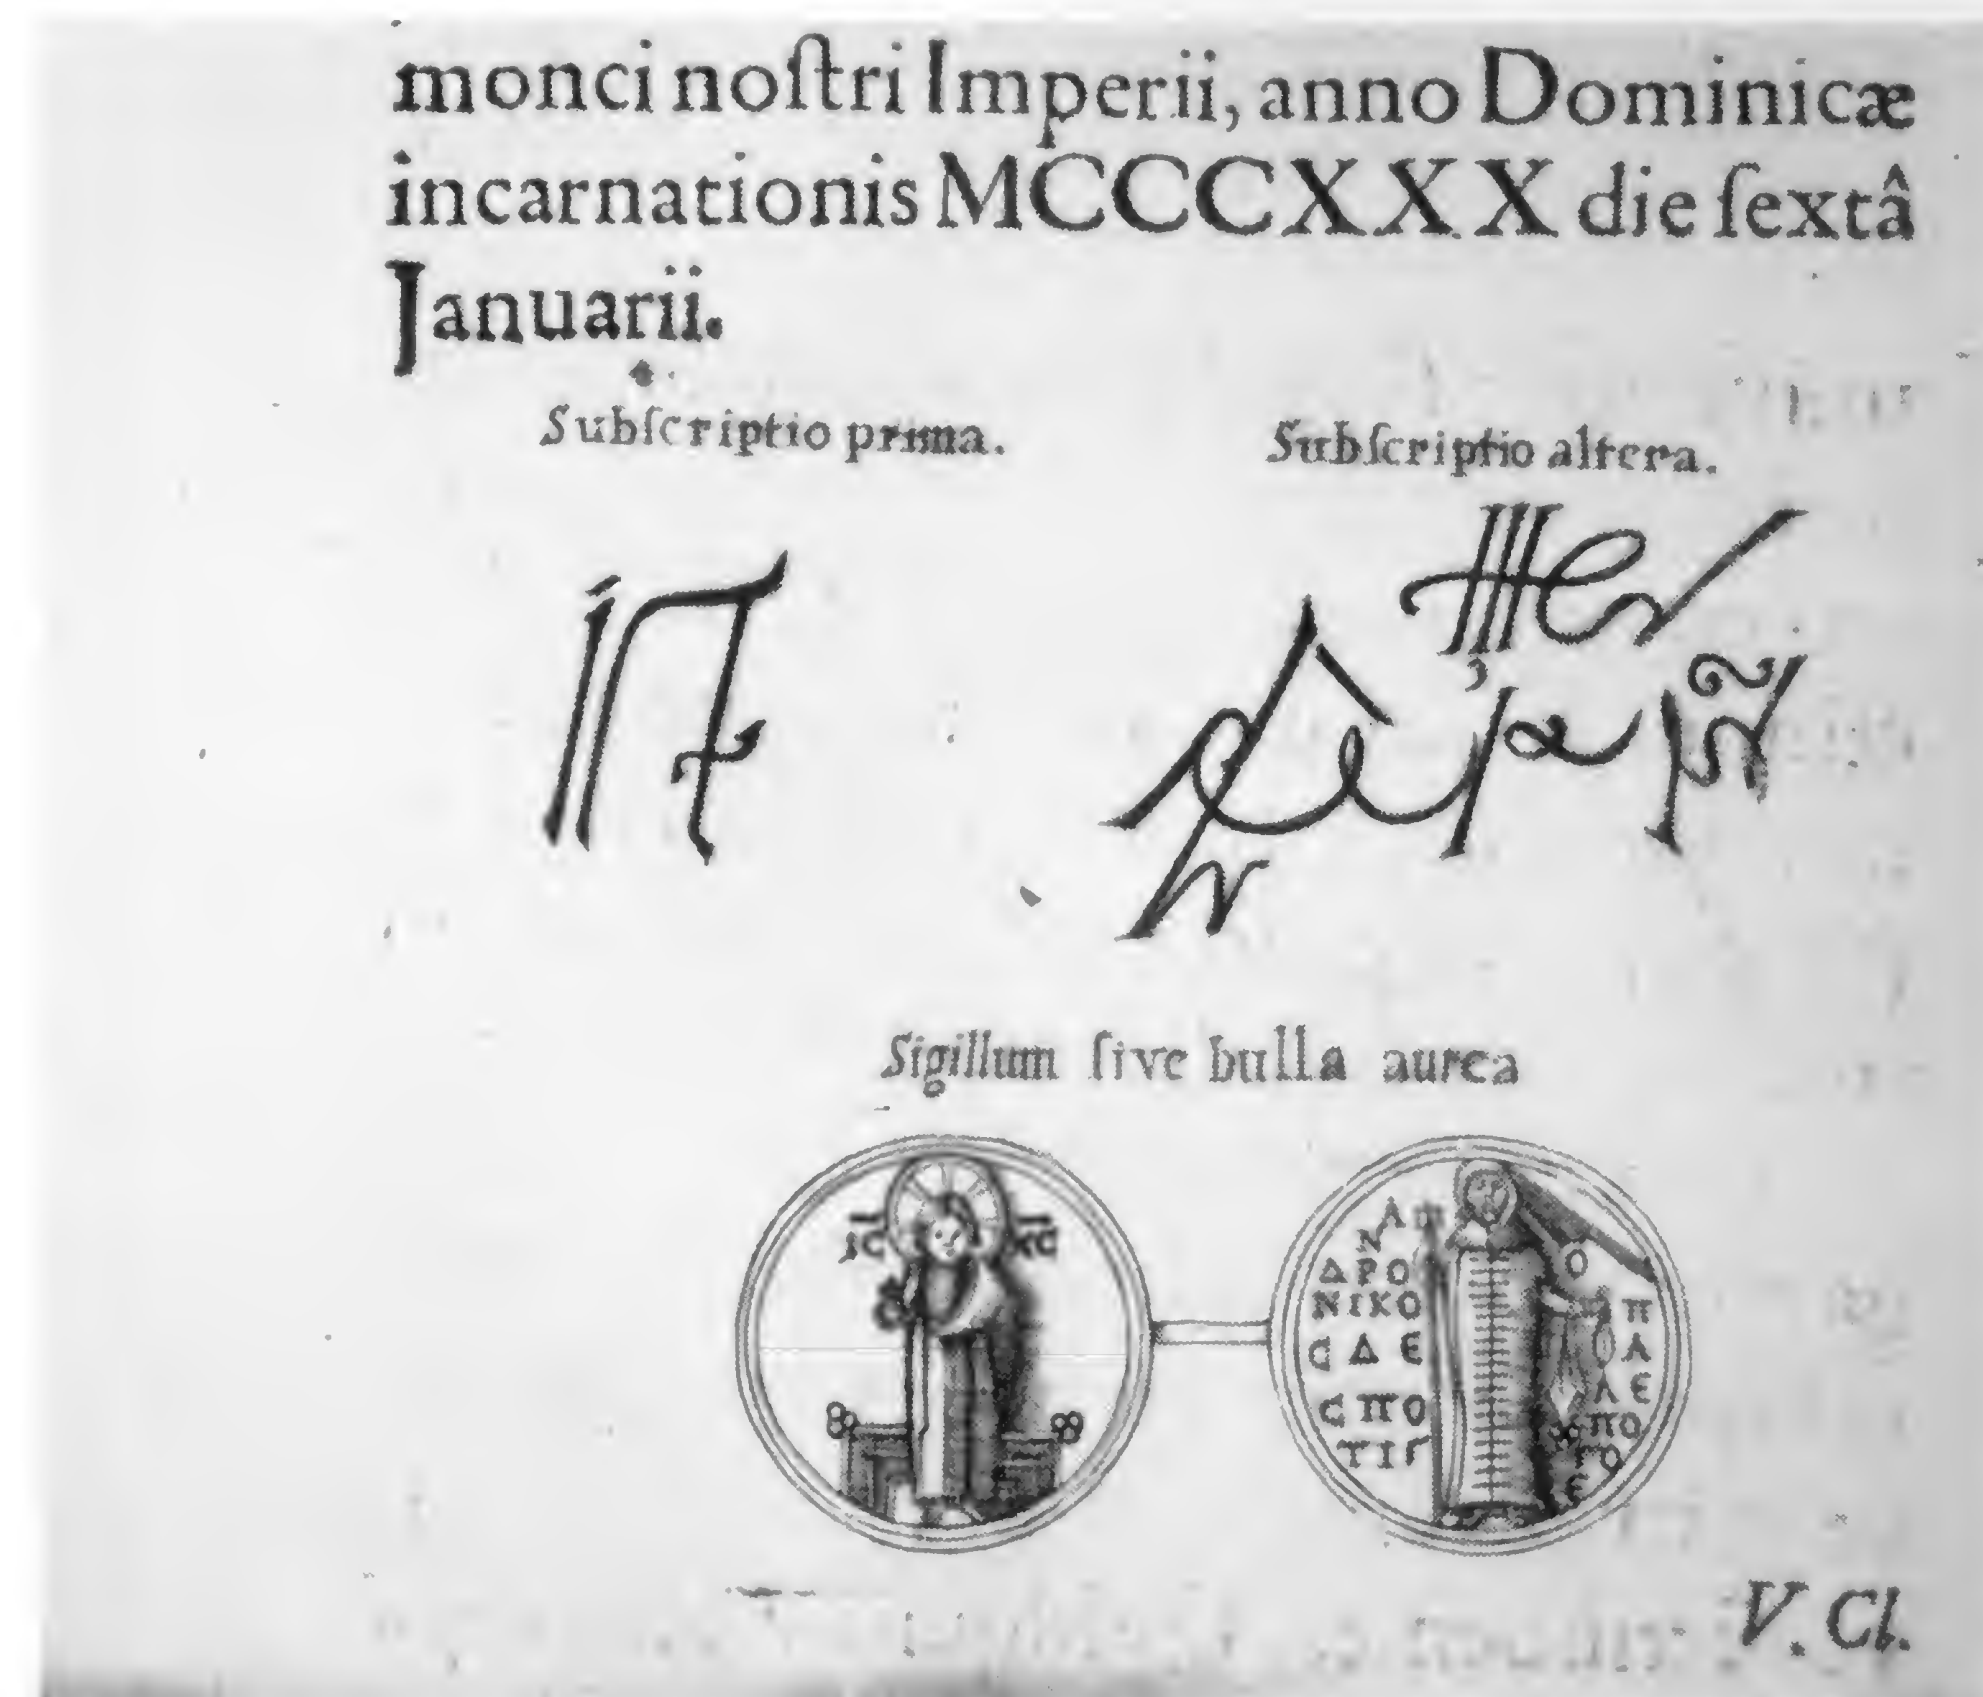 monci noſtri Imperii, anno Dominicæ
incarnationis MCCCXXX die ſextâ
Januarii.
Subſcriptio prima.
Subſcriptio altera.
Sigillum ſive bulla aurea
ΙC ΧC
ΔΡΟ
ΝΙΚΟ
C Δ Ε
C ΠΟ
ΤΙ
Ο
Π
Α
Λ Ε
ΠΟ
ΓΟ
V. Cl.